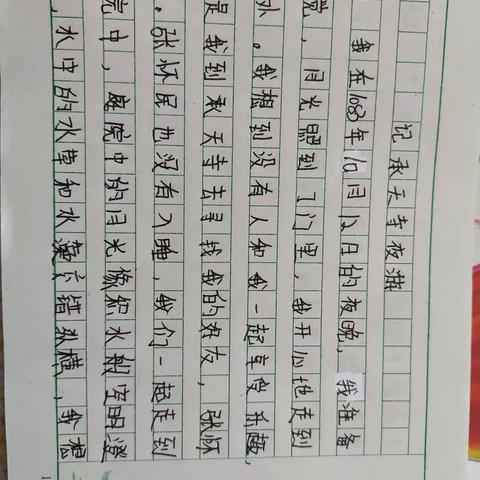 记承天寺夜游
我在1083年10月12日的夜晚，我准备
觉，月光照到了门里，我开心地走到
外。我想到没有人和我一起享受乐趣，
是我到承天寺去寻找我的好友，张怀
。张怀民也没有入睡，我们一起走到
院中，庭院中的月光像积水般空明澄
，水中的水草和水藻交错纵横，我想